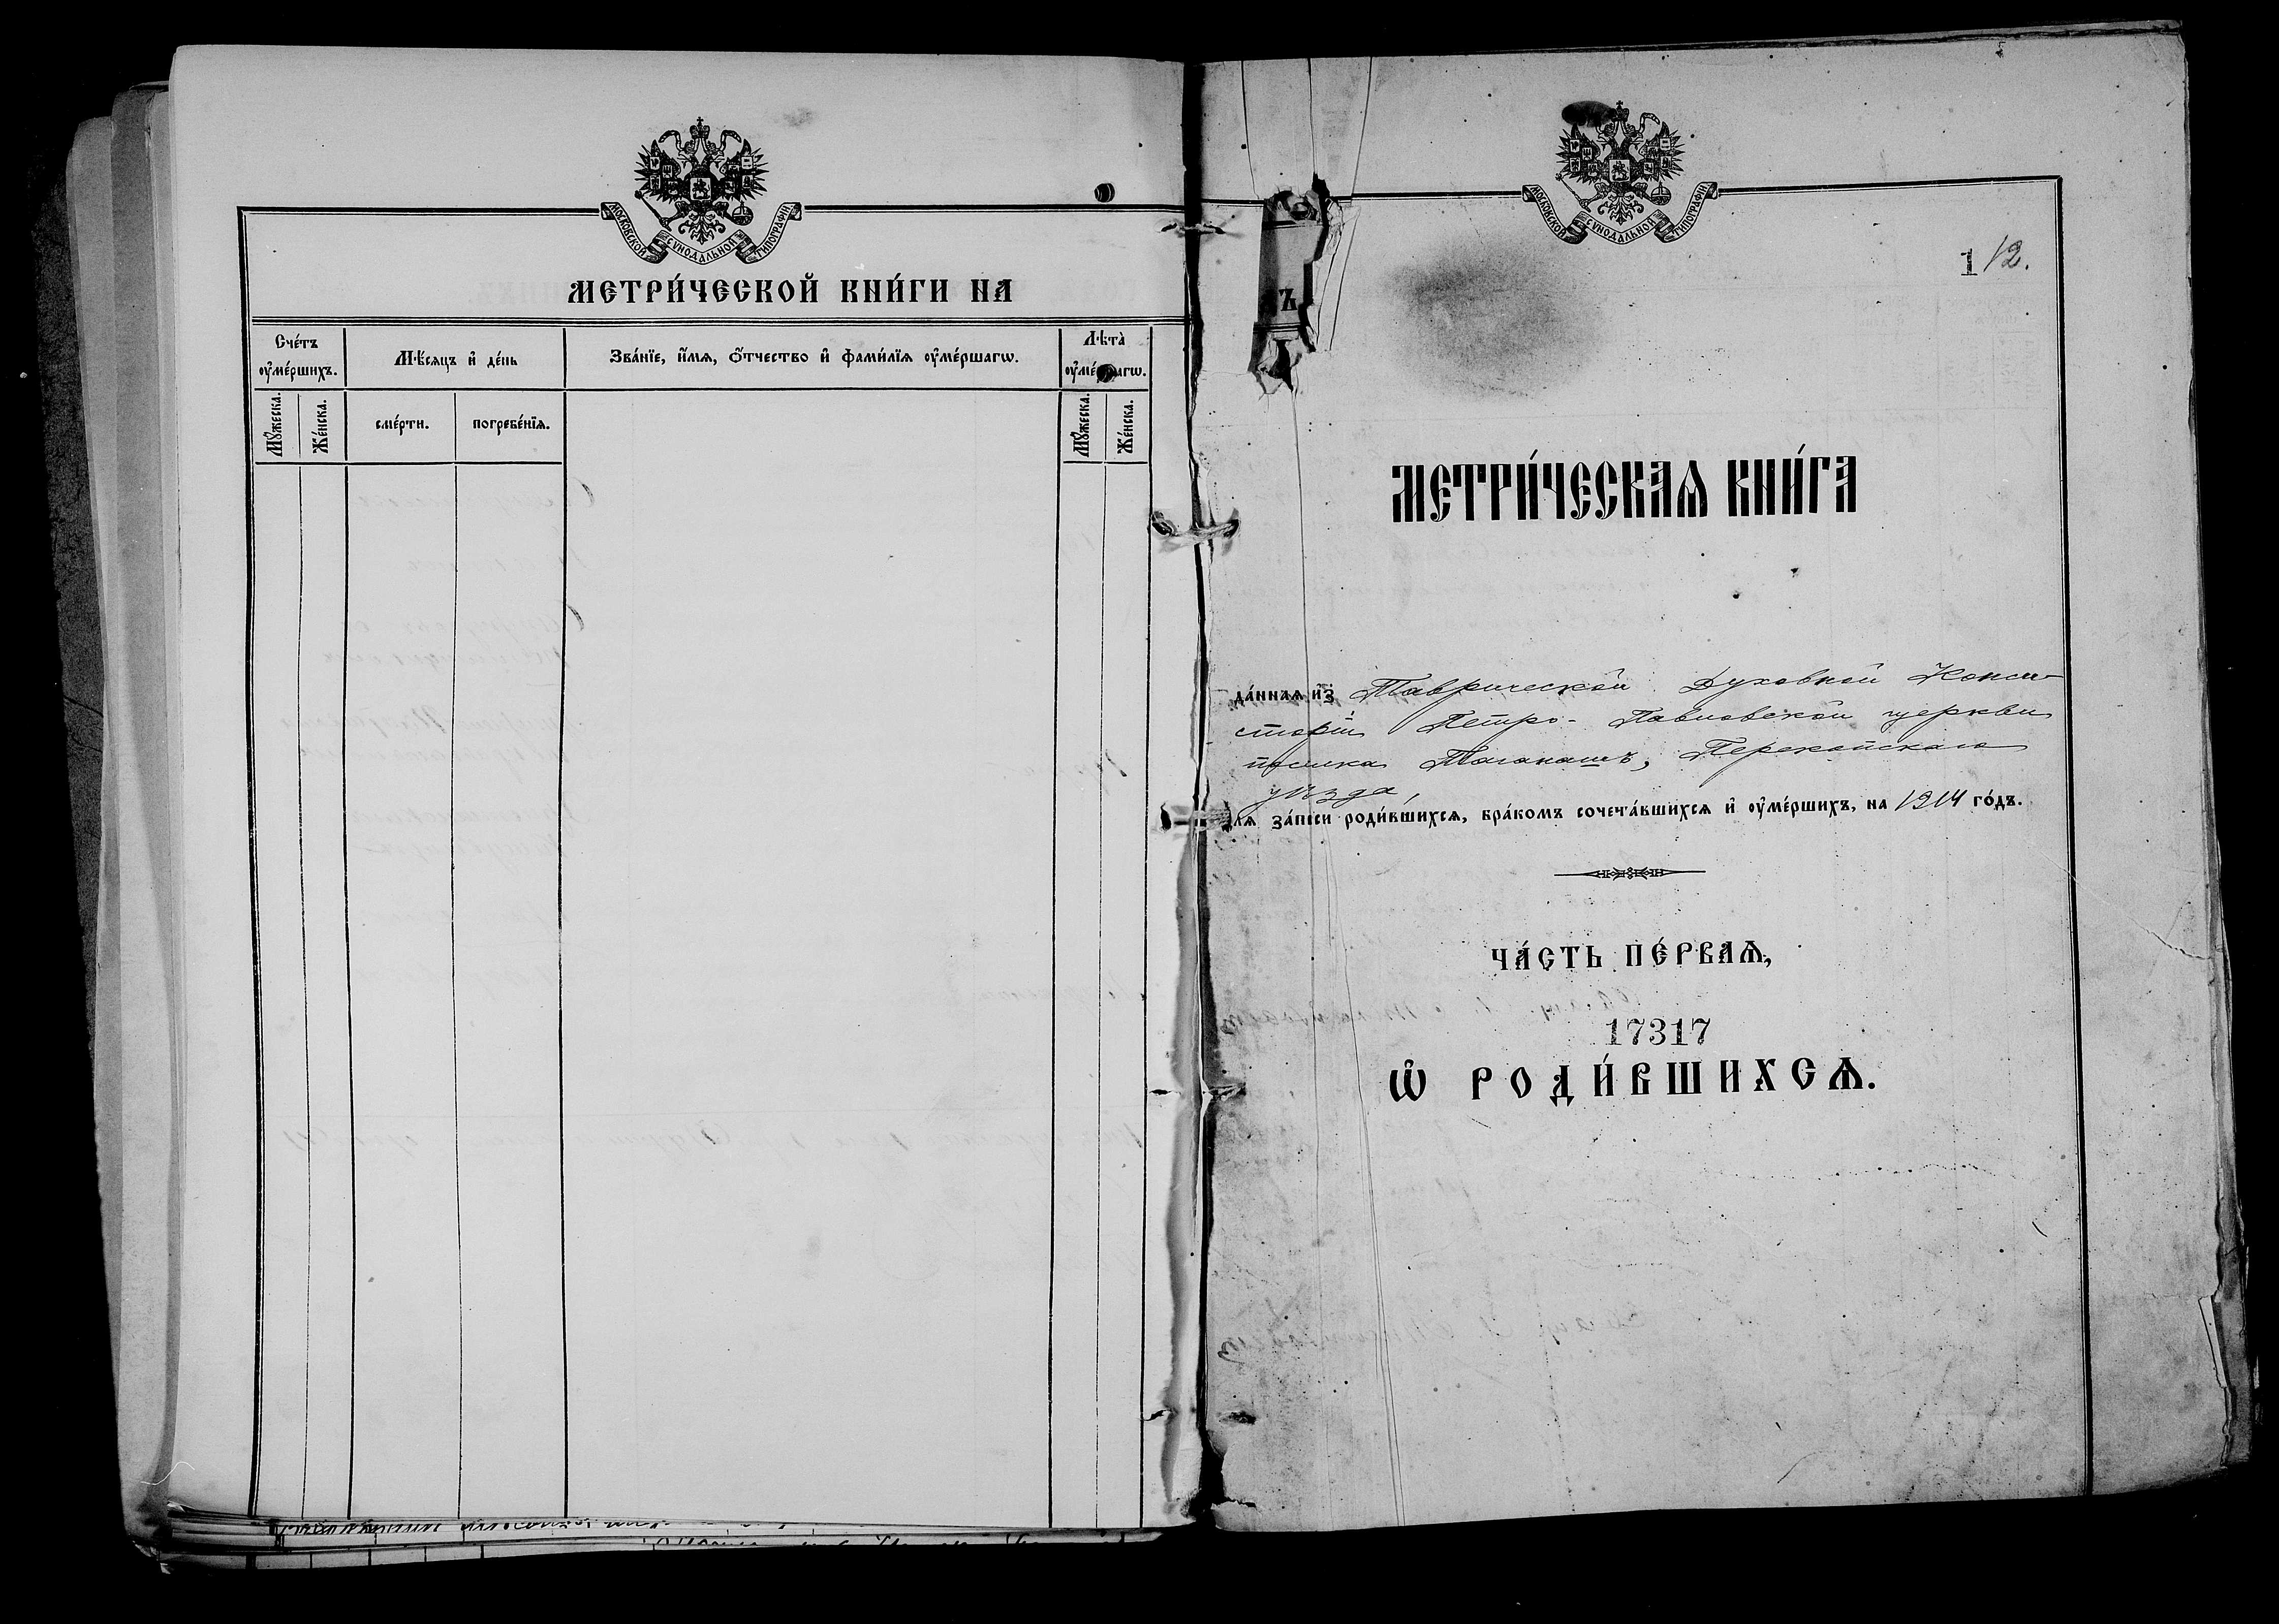 МОСКОВСКОЙ СѴНОДАЛЬНОЙ ТИПОГРАФІИ.
МЕТРИ́ЧЕСКОЙ КНИ́ГИ НА
Сче́тъ ᲂу҆ме́ршихъ.
Мѣ́сяцъ и҆ де́нь
Зва́нїе, и҆́мя, ѻ҆́тчество и҆ фами́лїѧ ᲂу҆ме́ршагѡ.
Лѣ́та ᲂу҆ме́ршагѡ.
Мꙋ́жеска.
Же́нска.
сме́рти.
погребе́нїѧ.
Мꙋ́жеска.
Же́нска.
МОСКОВСКОЙ СѴНОДАЛЬНОЙ ТИПОГРАФІИ
112.
Ъ
МЕТРИ́ЧЕСКАѦ КНИ́ГА
да́ннаѧ и҆з̾ Таврической Духовной Конси-
сторіи Петро-Павловской церкви
поселка Таганашъ, Перекопскаго
уѣзда,
лѧ за́писи роди́вшихсѧ, бра́комъ сочета́вшихсѧ и҆ ᲂу҆ме́ршихъ, на 1914 го́дъ.
ЧА́СТЬ ПЕ́РВАѦ,
17317
Ѡ҆ РОДИ́ВШИХСѦ.